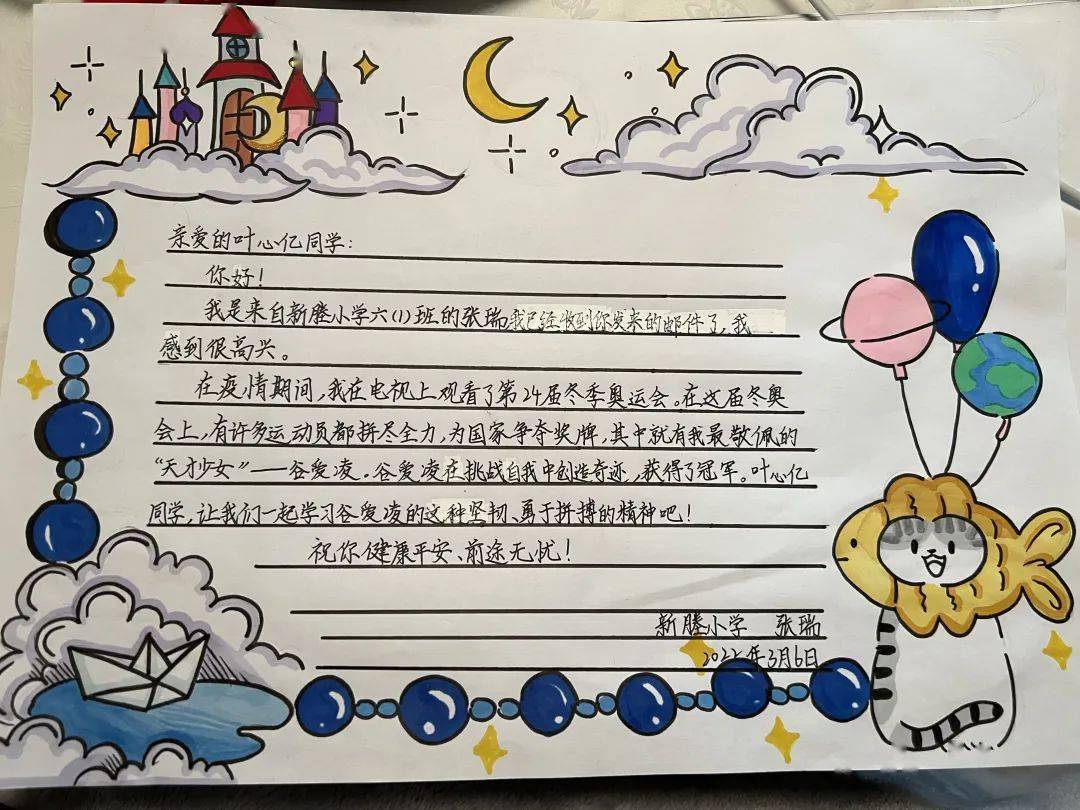 亲爱的叶心亿同学:
你好!
我是来自新塍小学六(1)班的张瑞,我已经收到你发来的邮件了,我
感到很高兴。
在疫情期间,我在电视上观看了第24届冬季奥运会。在这届冬奥
会上,有许多运动员都拼尽全力,为国家争夺奖牌,其中就有我最敬佩的
“天才少女”——谷爱凌。谷爱凌在挑战自我中创造奇迹,获得了冠军。叶心亿
同学,让我们一起学习谷爱凌的这种坚韧、勇于拼搏的精神吧!
祝你健康平安、前途无忧!
新塍小学 张瑞
2022年3月6日